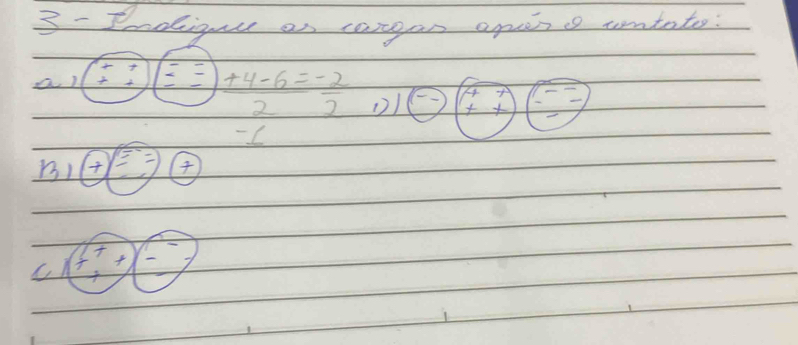 3 - Indique as cargas após o contato:
a) ++++ ------ +4-6 = -2
2 2
-1
D) -- ++++ -----
B) + ------ +
C) +++++ -----